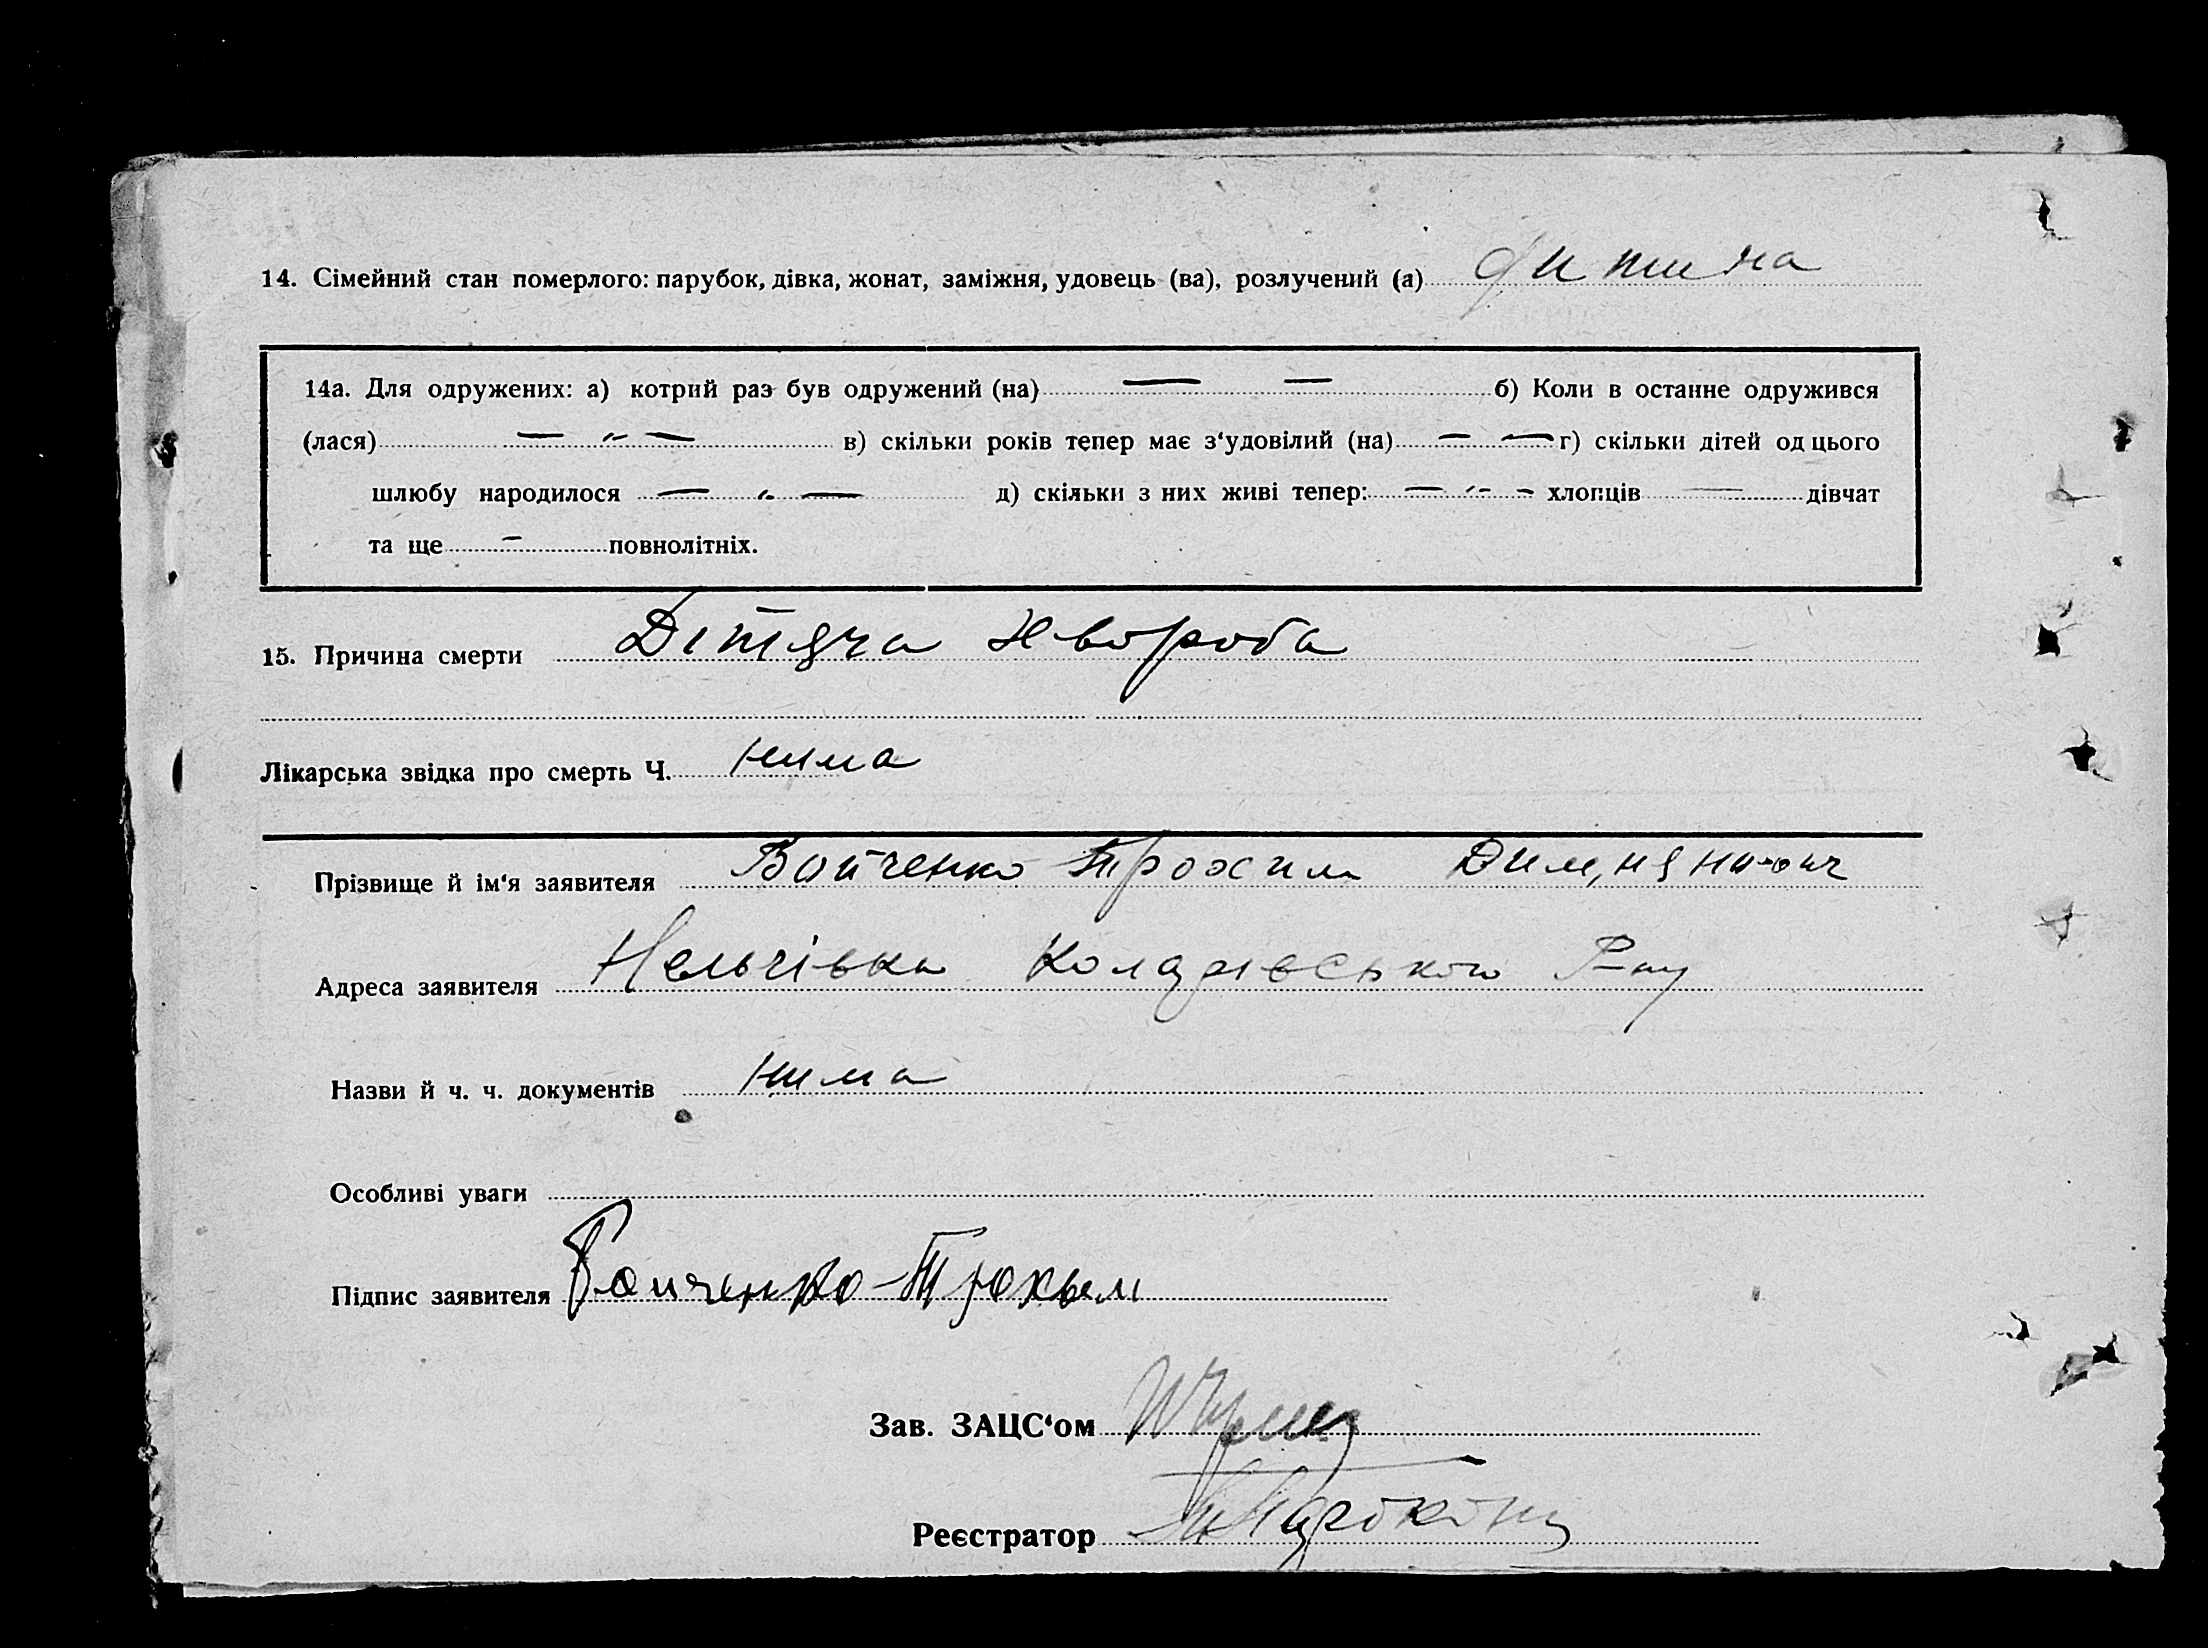 14. Сімейний стан померлого: парубок, дівка, жонат, заміжня, удовець (ва), розлучений (а) дитина
14а. Для одружених: а) котрий раз був одружений (на) — — б) Коли в останнє одружився
(лася) — „ — в) скільки років тепер має з‘удовілий (на) — — г) скільки дітей од цього
шлюбу народилося — „ — д) скільки з них живі тепер: — „ — хлопців — дівчат
та ще — повнолітніх.
15. Причина смерти Дітяча хвороба
Лікарська звідка про смерть Ч. нима
Прізвище й ім‘я заявителя Войченко Трохим
Адреса заявителя Р-ну
Назви й ч. ч. документів нима
Особливі уваги
Підпис заявителя Войченко-Трохым
Зав. ЗАЦС‘ом
Реєстратор